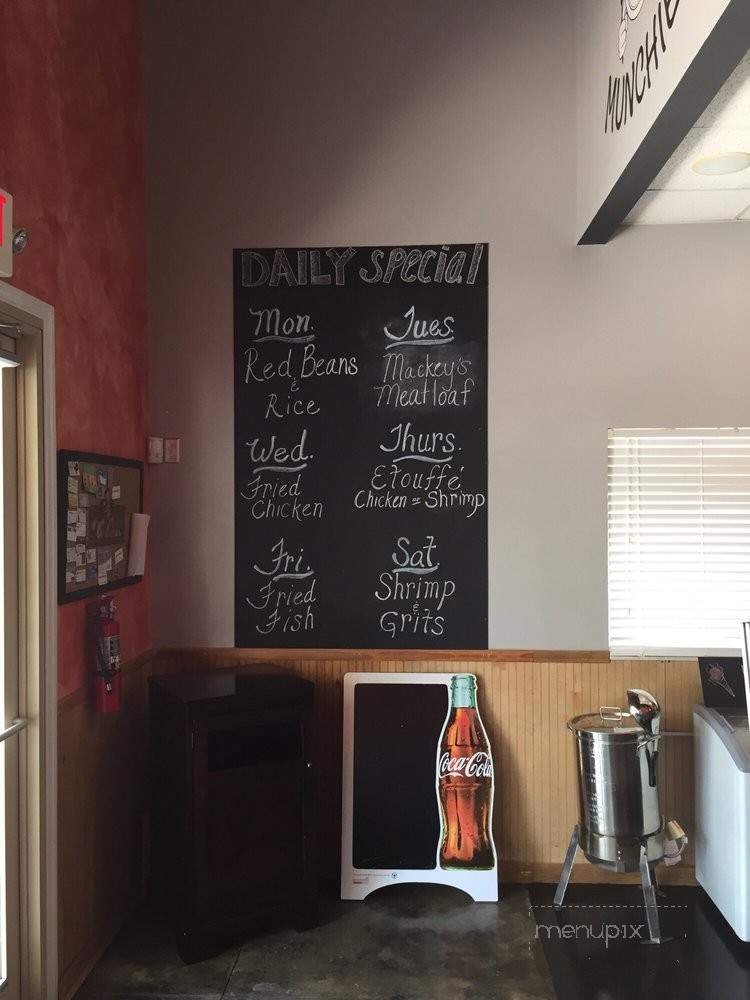 MUNCHIE
DAILY Special
Mon.
Red Beans
&
Rice
Tues.
Mackey's
Meatloaf
Wed.
Fried
Chicken
Thurs.
Etouffé
Chicken or Shrimp
Fri.
Fried
Fish
Sat.
Shrimp
&
Grits
Coca-Cola
menupix